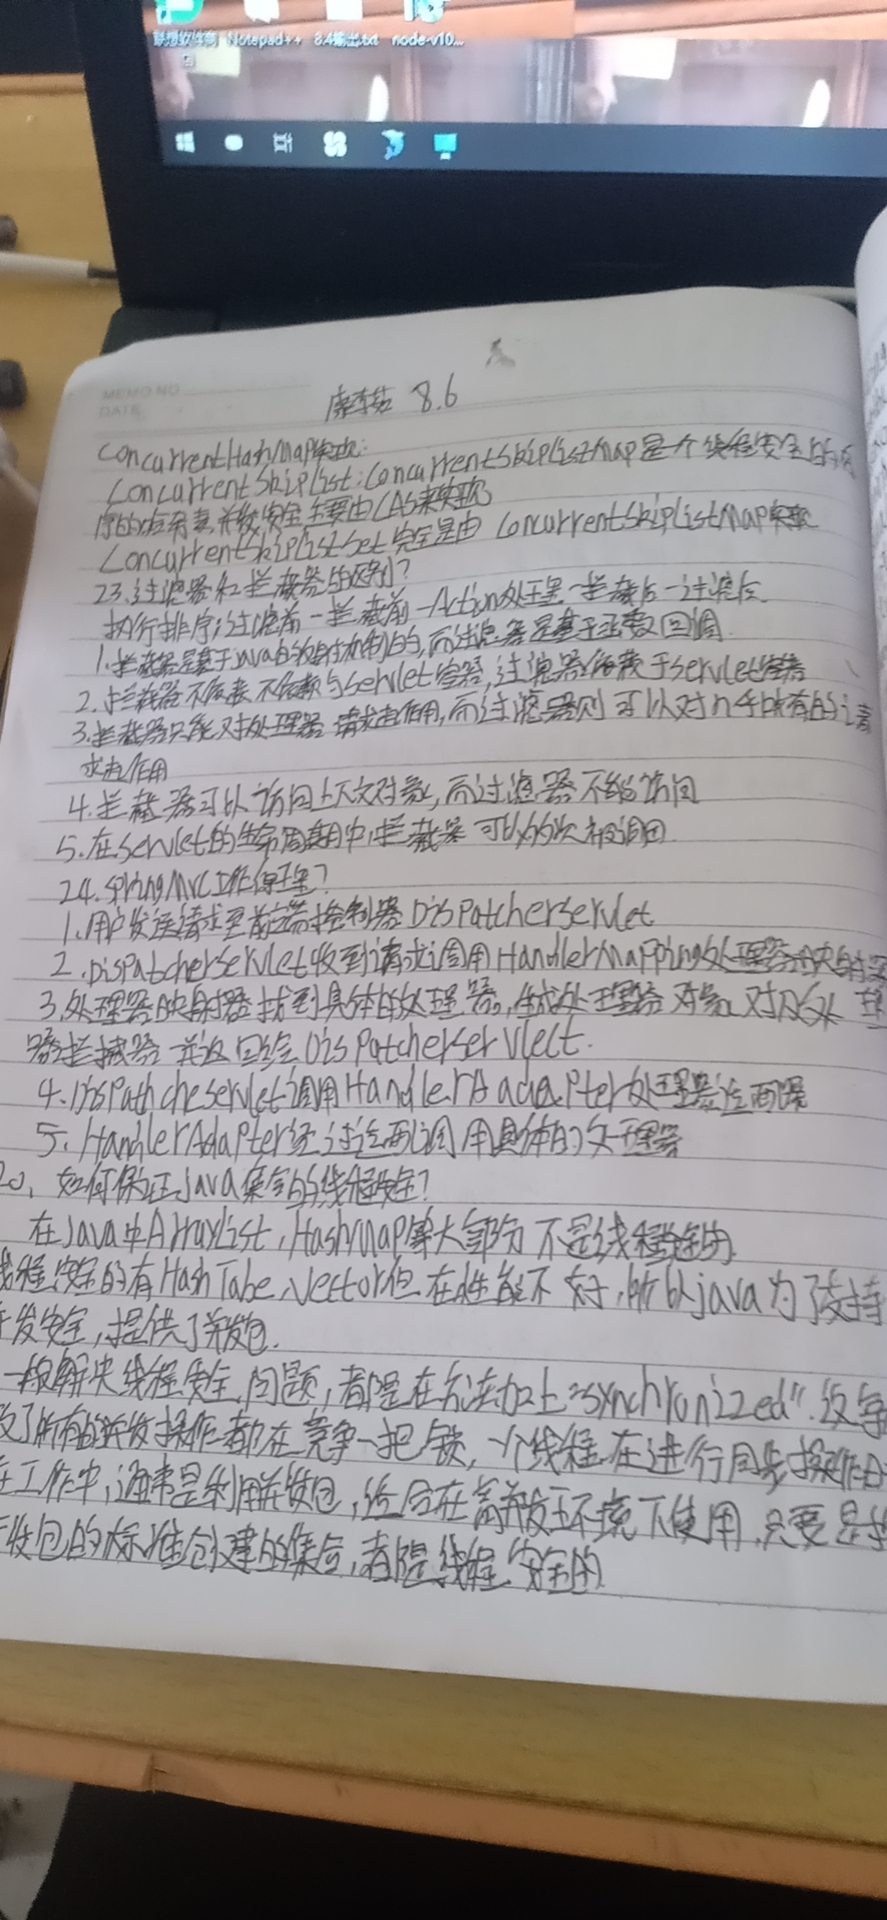 联想软件商 Notepad++ 8.4输出.txt node-v10...
MEMO NO
DATE
8.6
ConcurrentHashMap实现:
ConcurrentSkipList:ConcurrentSkipListMap是个线程安全的有
序的 并发安全主要由CAS来实现
ConcurrentSkipListSet完全是由 ConcurrentSkipListMap实现
23.过滤器和拦截器的区别?
执行排序:过滤前-拦截前-Action处理-拦截后-过滤后
1.拦截器是基于java的反射机制的,而过滤器是基于函数回调
2.拦截器不依赖 不依赖与Servlet容器,过滤器依赖于servlet容器
3.拦截器只能对处理器 请求起作用,而过滤器则可以对几乎所有的请
求起作用
4.拦截器可以访问上下文对象,而过滤器不能访问
5.在servlet的生命周期中,拦截器可以 次被调用
24.springMVC工作原理?
1.用户发送请求至前端控制器DisPatcherservlet
2.DisPatcherservlet收到请求调用HandlerMapping处理器映射
3.处理器映射器找到具体的处理器,生成处理器对象 对及处理
器拦截器 并返回给DisPatcherserVlelt.
4.DisPathcheservlet调用HandlerAadaepter处理器适配器
5.HandlerAdapter经过适配调用具体的处理器
20、如何保证java集合的线程安全?
在java中ArrayList,HashMap等大部分不是线程安全的
线程安全的有HashTabe、Vector但在性能不好,所以java为了支持
并发安全,提供了并发包.
一般解决线程安全问题,都是在方法加上"synchronized".
所有的并发操作都在竞争一把锁,一个线程在进行同步操作
在工作中,通常是利用并发包, 在高并发环境下使用,只要是
发包的标准创建的集合,都是线程安全的